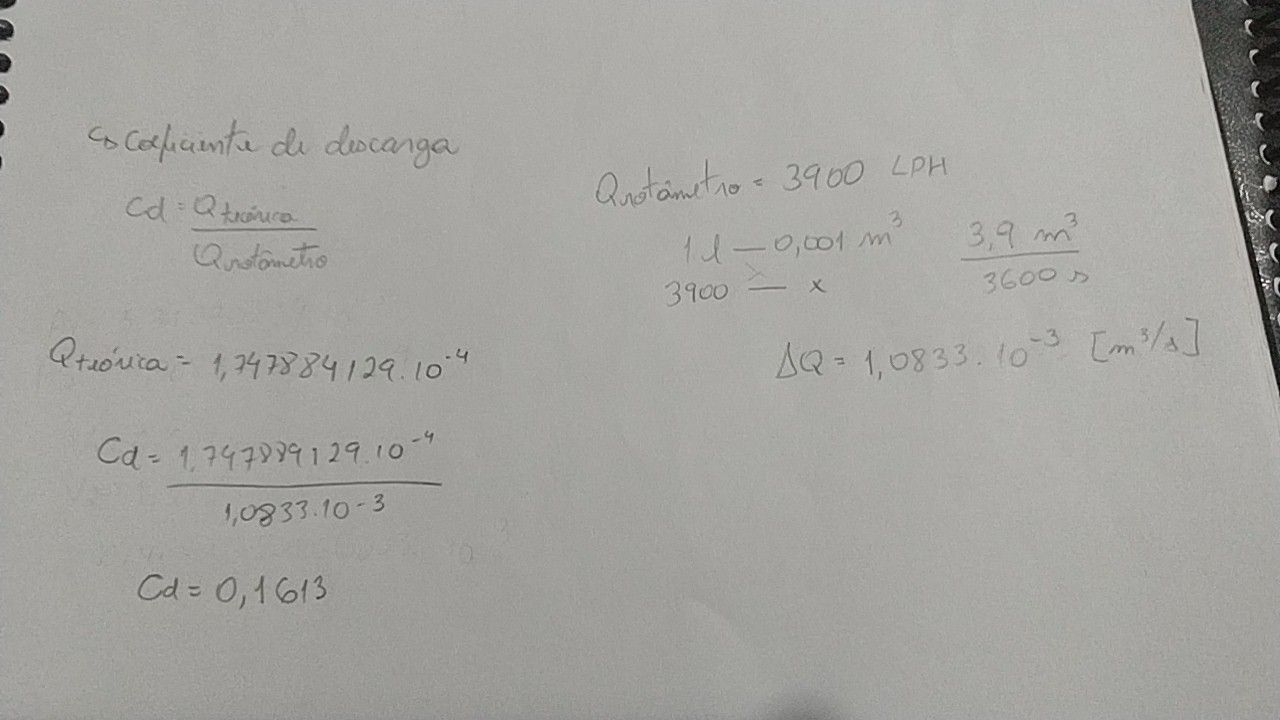 ↳ Coeficiente de descarga
Cd = Qteórica
Qrotâmetro
Qteórica = 1,747884129.10⁻⁴
Cd = 1,747889129.10⁻⁴
1,0833.10⁻³
Cd = 0,1613
Qrotâmetro = 3900 LPH
1l — 0,001 m³
3900 — x
3,9 m³
3600 s
ΔQ = 1,0833.10⁻³ [m³/s]